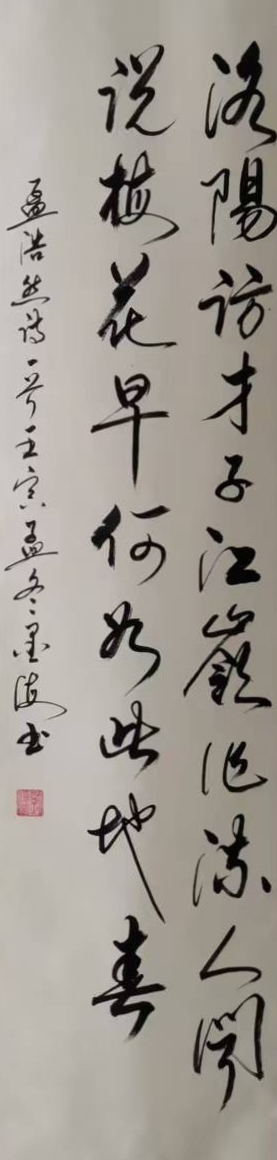 洛陽訪才子江嶺作流人聞
说梅花早何如此地春
孟浩然诗一首壬寅孟冬墨海书